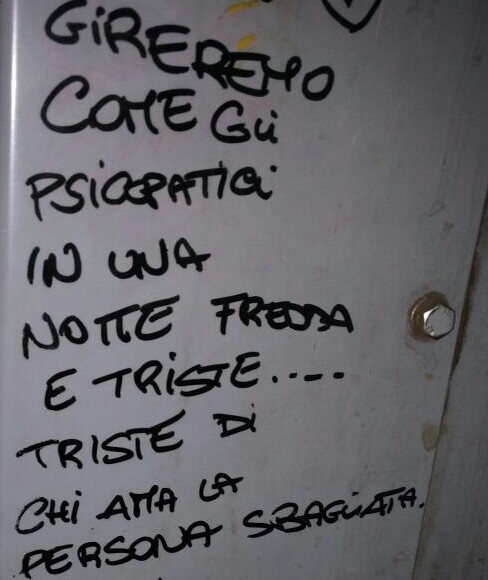 GiREREMO
COME Gli
PSiCOPATiCi
IN UNA
NOTTE FREDDA
E TRiSTE.....--
TRISTE Di
CHi AMA LA
PERSONA SBAGLiATA.